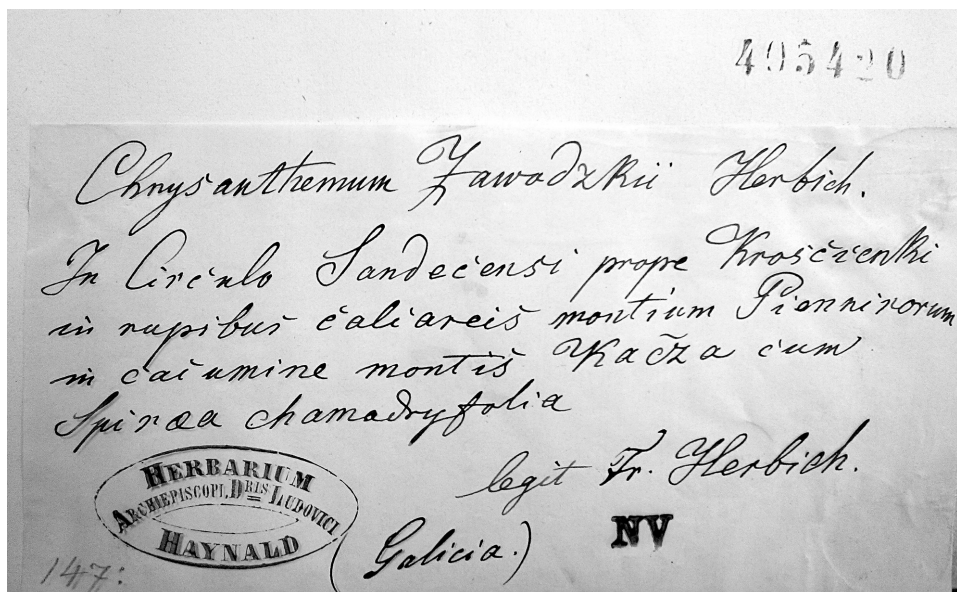 495420
Chrysanthemum Zawadzkii Herbich.
In Circulo Sandecensi prope Krosczenki
in rupibus caliareis montium Pienninorum
in cacumine montis Kacza cum
Spiræa chamadryfolia
legit Fr. Herbich.
HERBARIUM
ARCHIEPISCOPI, DRIS LUDOVICI
HAYNALD
(Galicia.)
NV
147: